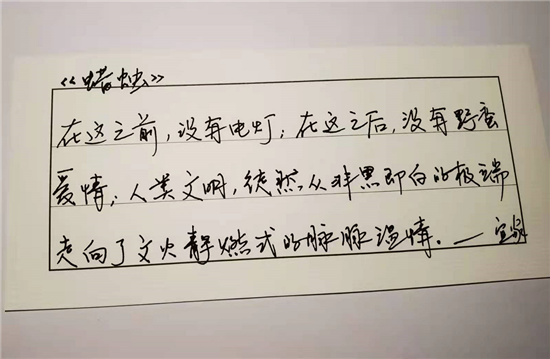 《蜡烛》
在这之前，没有电灯；在这之后，没有野蛮
爱情；人类文明，徒然从非黑即白的极端
走向了文火静燃式的脉脉温情。—